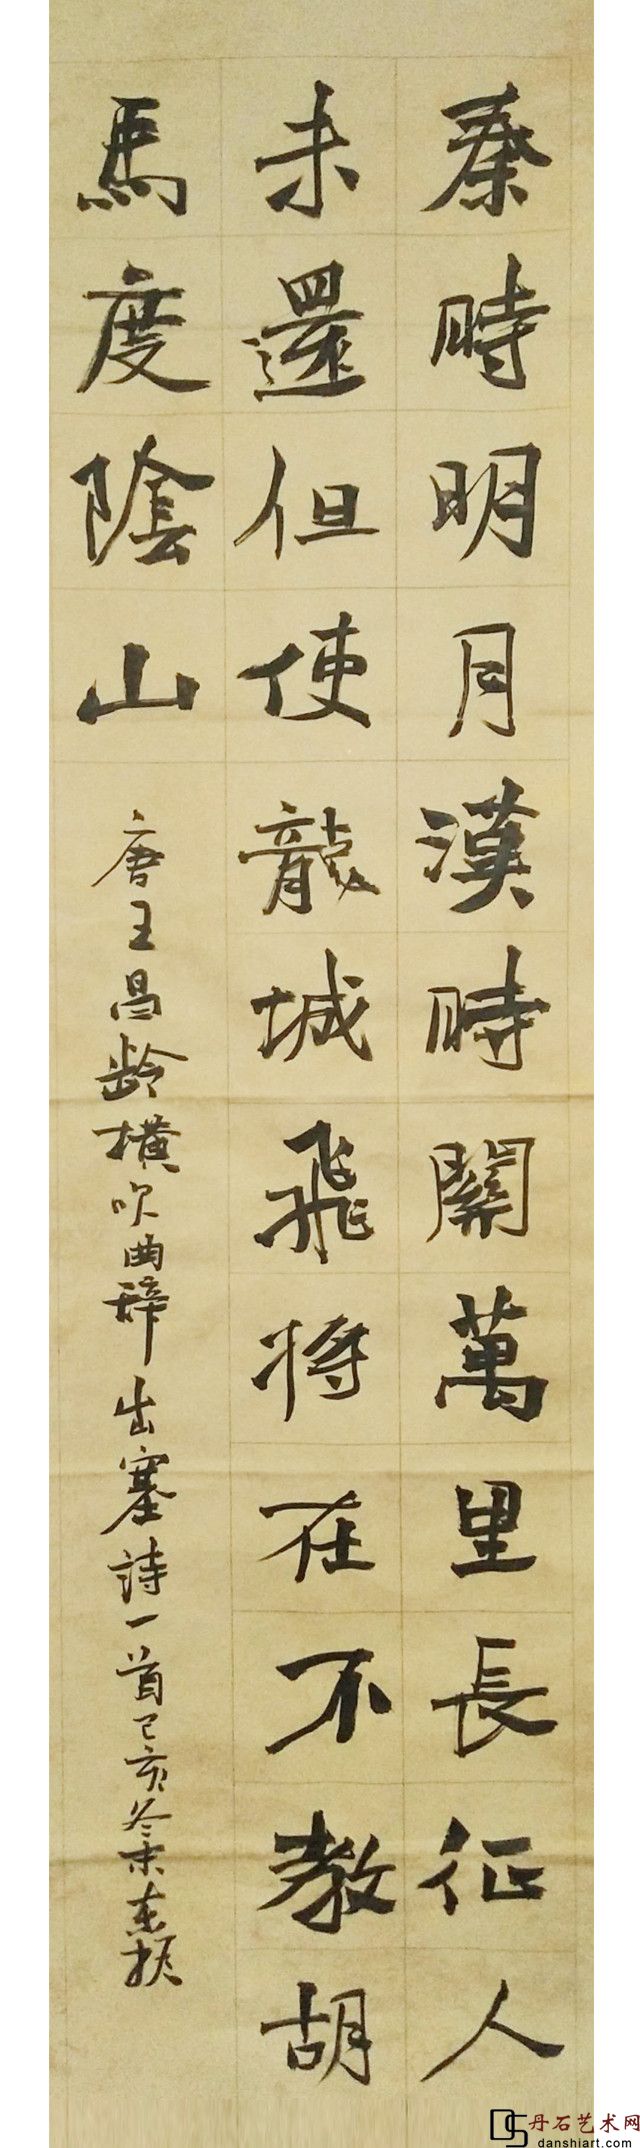 秦時明月漢時關萬里長征人
未還但使龍城飛将在不教胡
馬度陰山
唐王昌齡橫吹曲辞出塞詩一首己亥冬末
丹石艺术网
danshiart.com